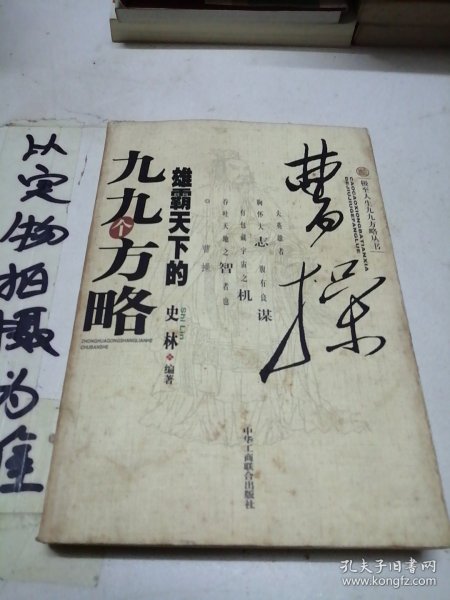 以实物拍摄为准
极至人生九九方略丛书
CAOCAOXIONGBATIANXIA
DEJIUJIUGEFANGLUE
曹操
夫英雄者
胸怀大志 腹有良谋
有包藏宇宙之机
吞吐天地之智者也
曹操
雄霸天下的
九九个方略
史林 编著
SHI Lin
ZHONGHUAGONGSHANGLIANHE
CHUBANSHE
中华工商联合出版社
孔夫子旧书网
www.kongfz.com